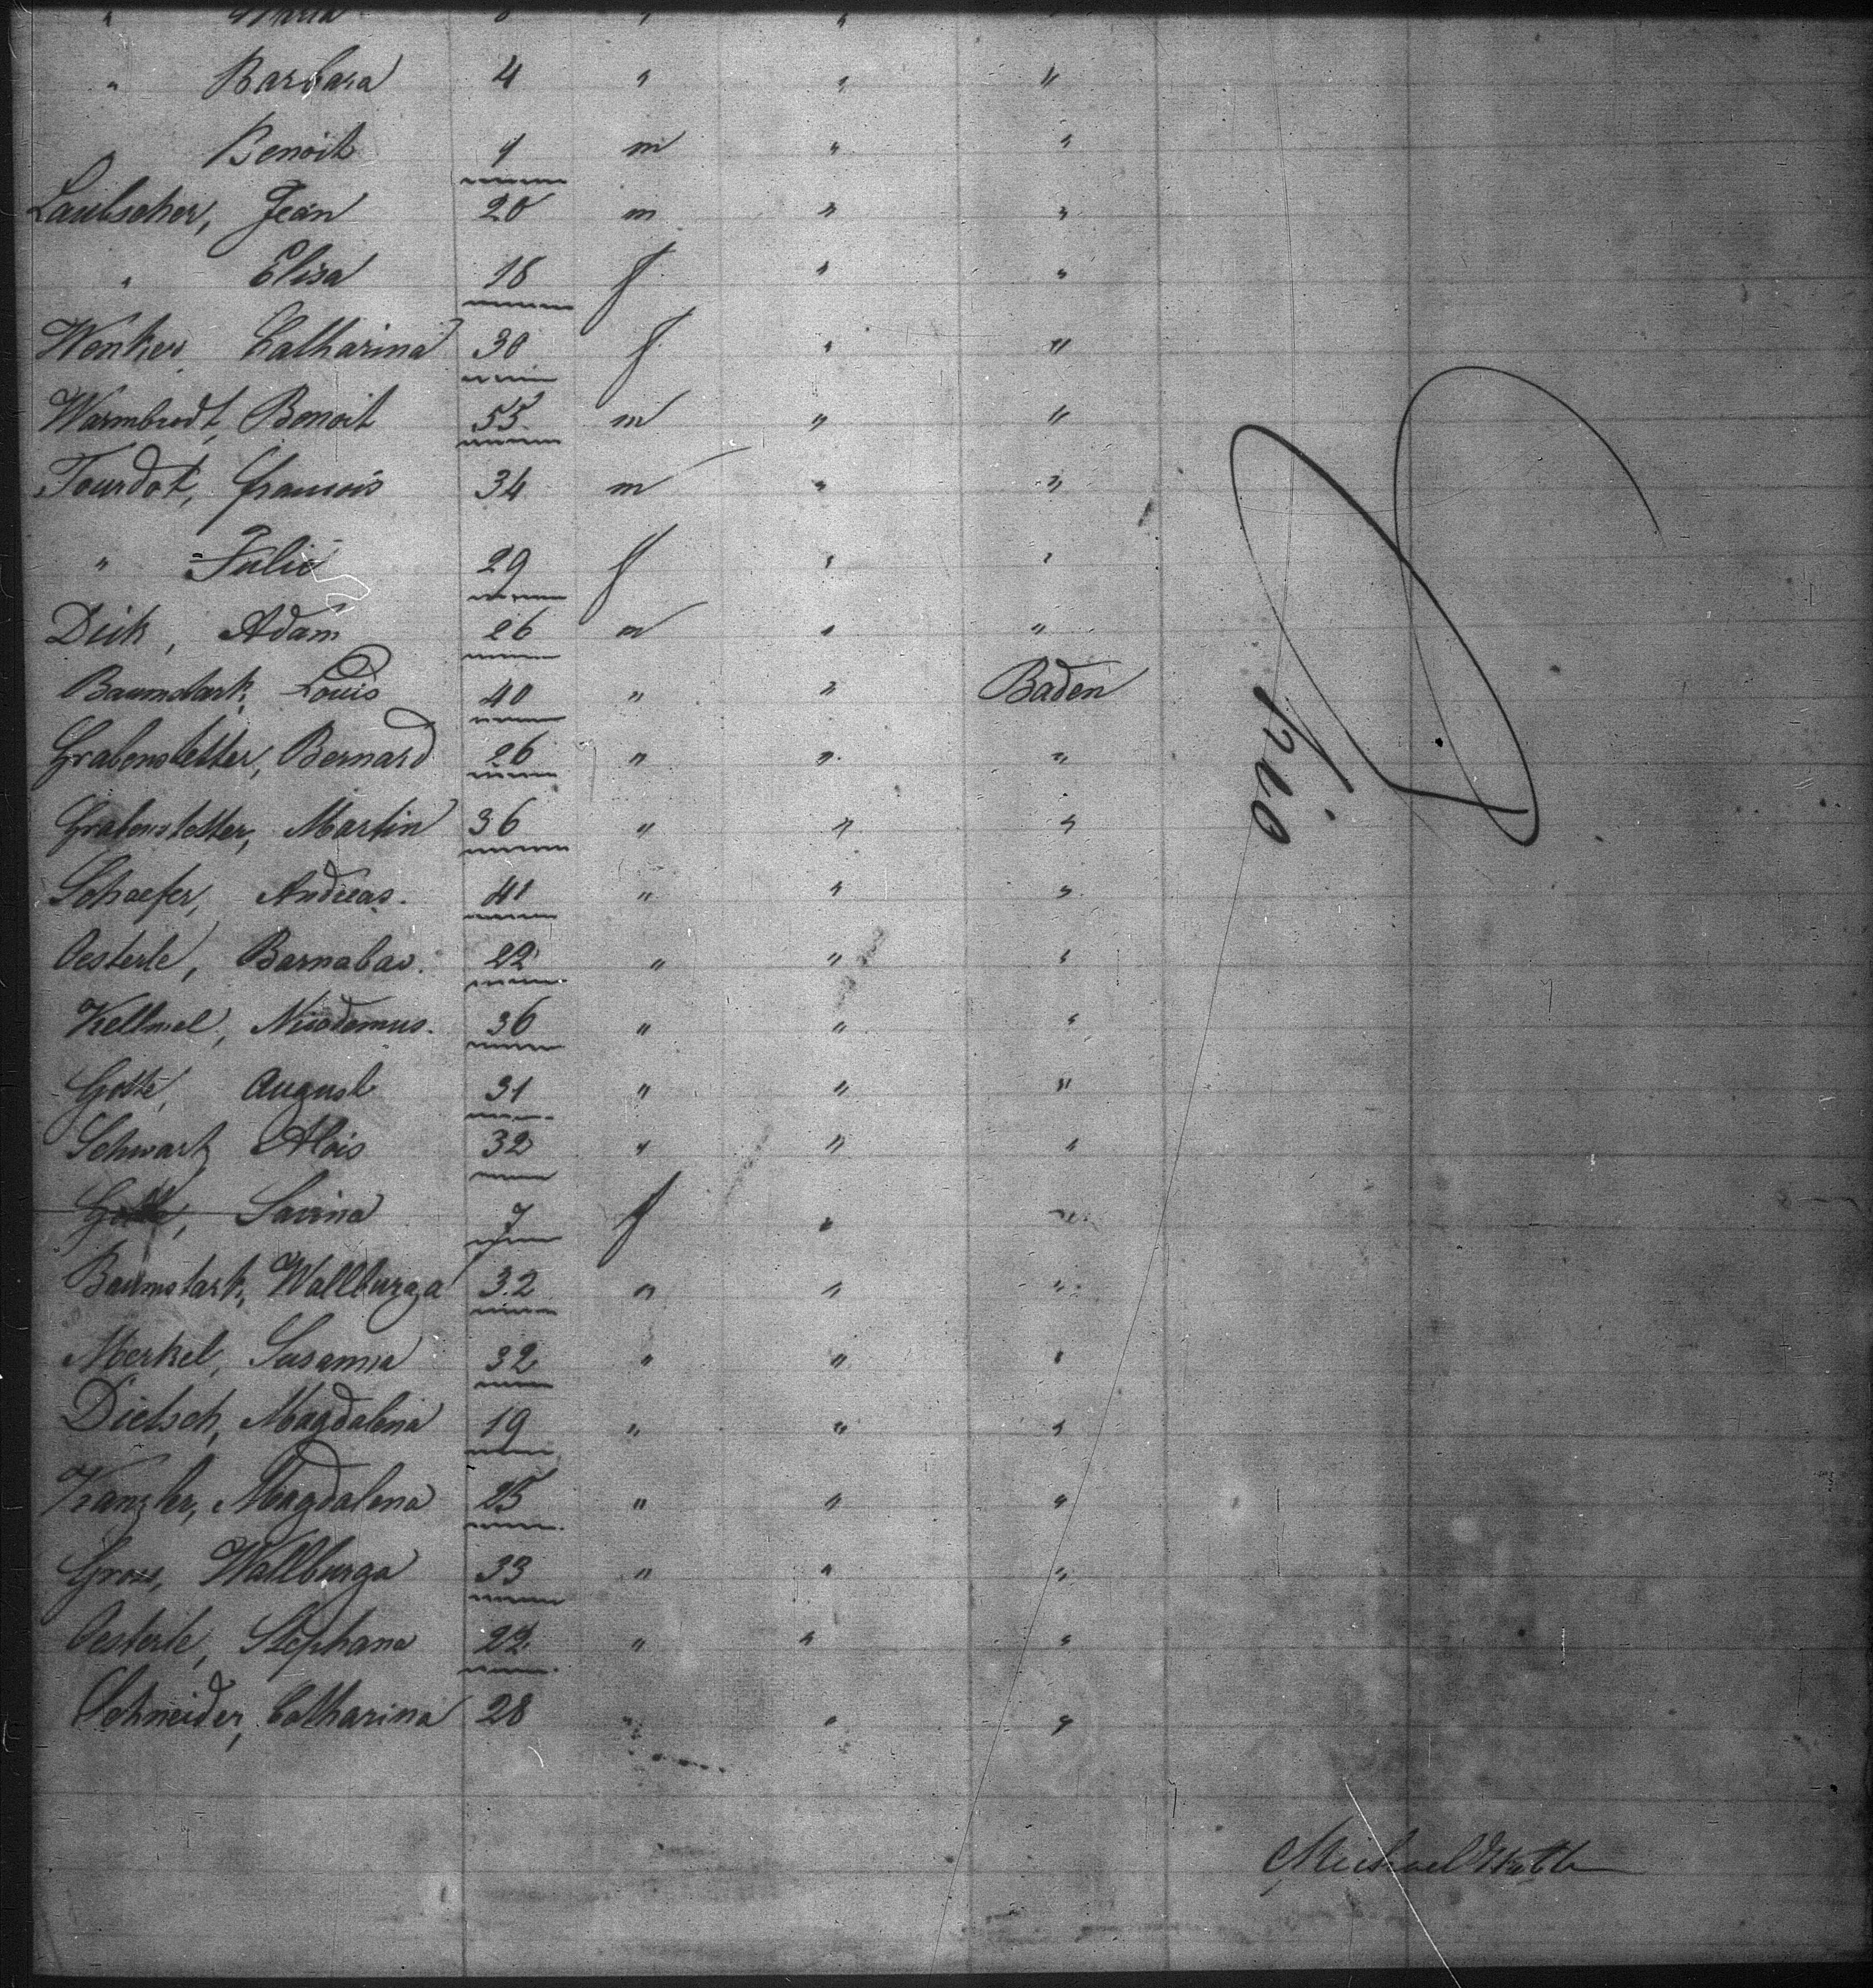 " Maria " "
" Barbara 4 " " "
Benoit 9 m " "
Laubscher, Jean 20 m " "
" Elisa 18 f " "
Wenker Catharina 30 f " "
Warmbrodt, Benoit 55 m " "
Tourdot, francois 34 m " "
" Julie 29 f " "
Dick, Adam 26 m " "
Baumstark, Louis 40 " " Baden
Grabenstetter, Bernard 26 " " "
Grabenstetter, Martin 36 " " "
Schaefer, Andreas. 41 " " "
Oesterle, Barnabas. 22 " " "
Kellmel, Nicodemus. 36 " " "
Gotté, August 31 " " "
Schwartz Alois 32 " " "
Savina 7 f " "
Baumstark, Wallburga 32 " " "
Merkel, Susanna 32 " " "
Dietsch, Magdalena 19 " " "
Kanzler, Magdalena 25 " " "
Gross, Wallburga 33 " " "
Oesterle, Stephana 22 " " "
Schneider, Catharina 28 " " "
Michael